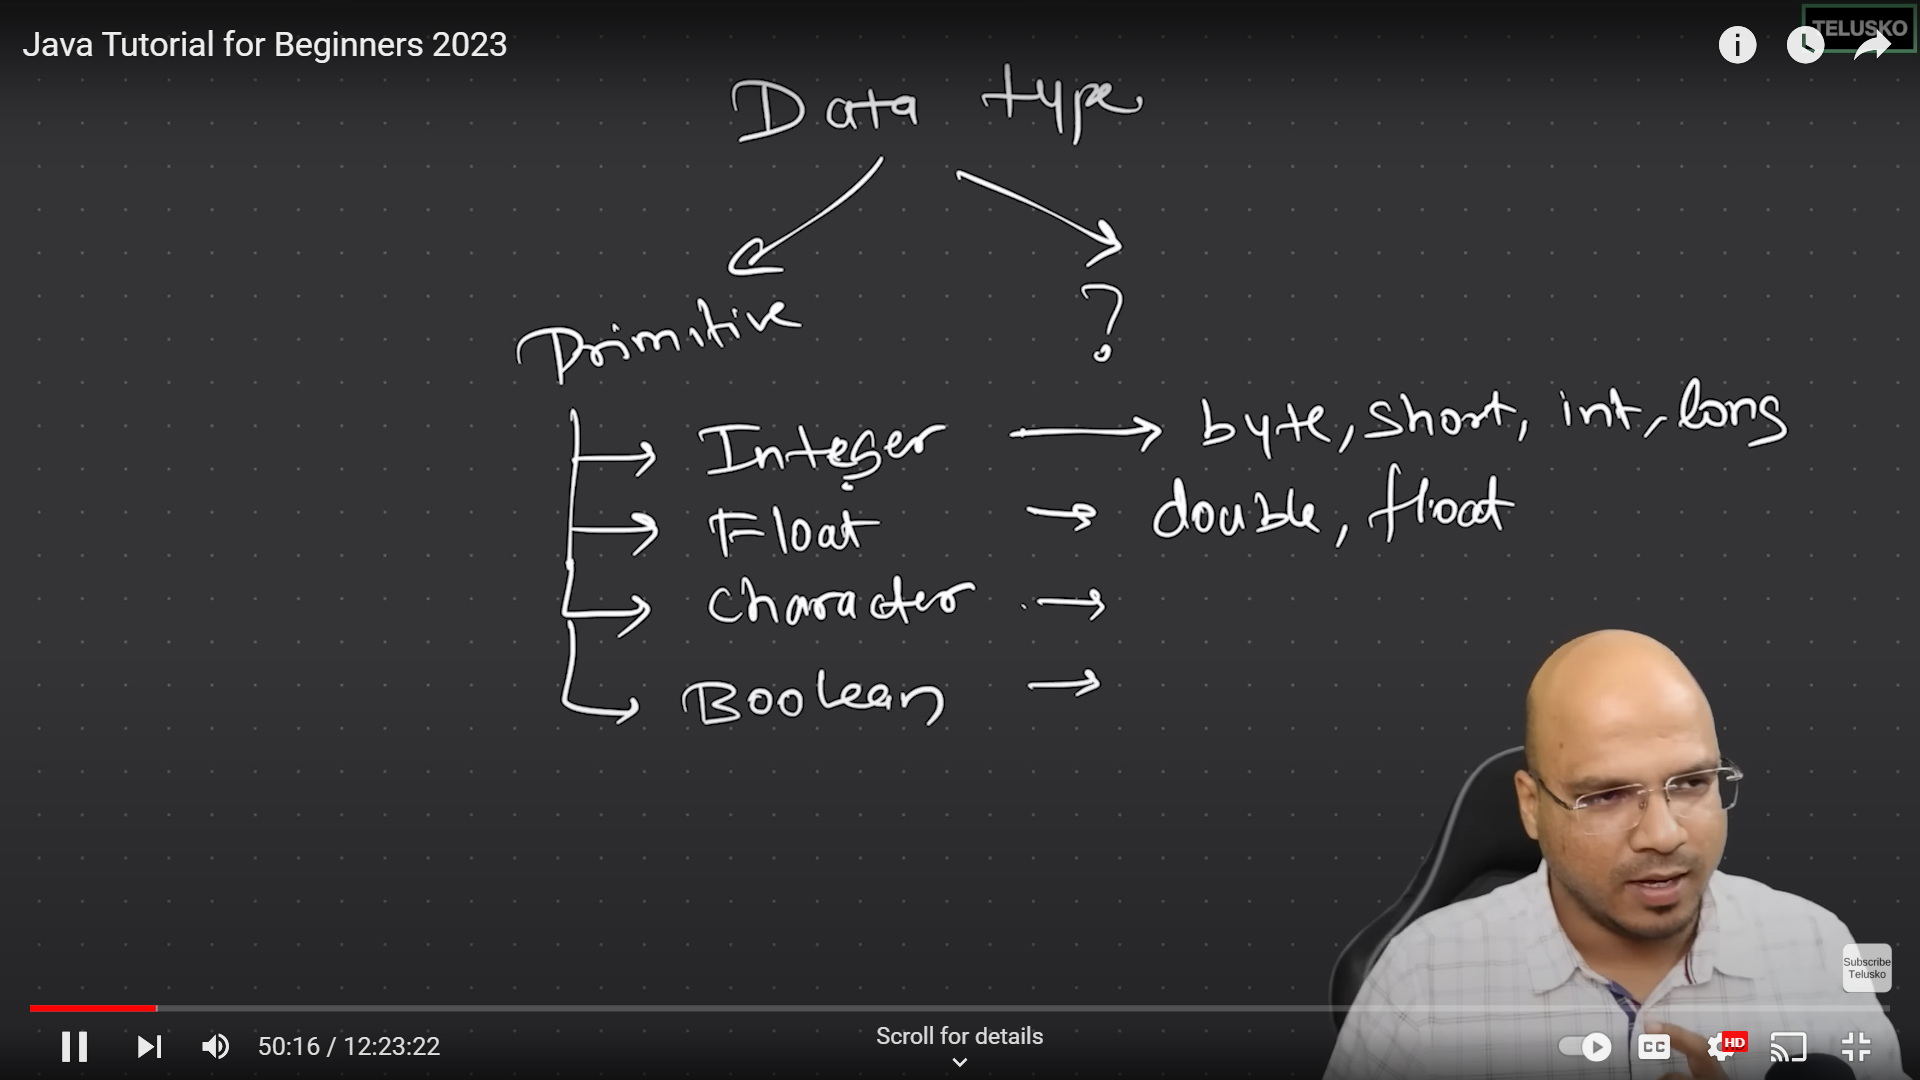 Java Tutorial for Beginners 2023
TELUSKO
Data type
Primitive
?
Integer → byte, short, int, long
Float → double, float
Character →
Boolean →
Subscribe
Telusko
50:16 / 12:23:22
Scroll for details
CC
HD